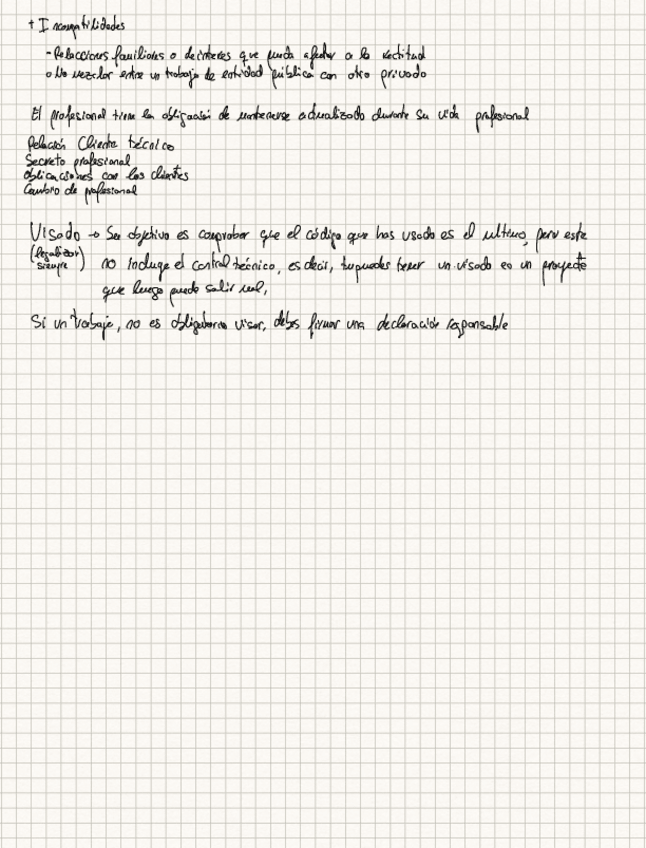 + Incompatilidades
- Relaciones familiares o de interes que pueda afectar a la rectitud
o No mezclar entre un trabajo de entidad pública con otro privado
El profesional tiene la obligación de mantenerse actualizado durante su vida profesional
Relación Cliente técnico
Secreto profesional
Obligaciones con los clientes
Cambio de profesional
Visado → Su objetivo es comprobar que el código que has usado es el ultimo, pero este
(legalizar siempre) no incluye el control técnico, es decir, tu puedes tener un visado en un proyecto
que luego puede salir mal,
Si un trabajo, no es obligatorio visar, debes firmar una declaración responsable